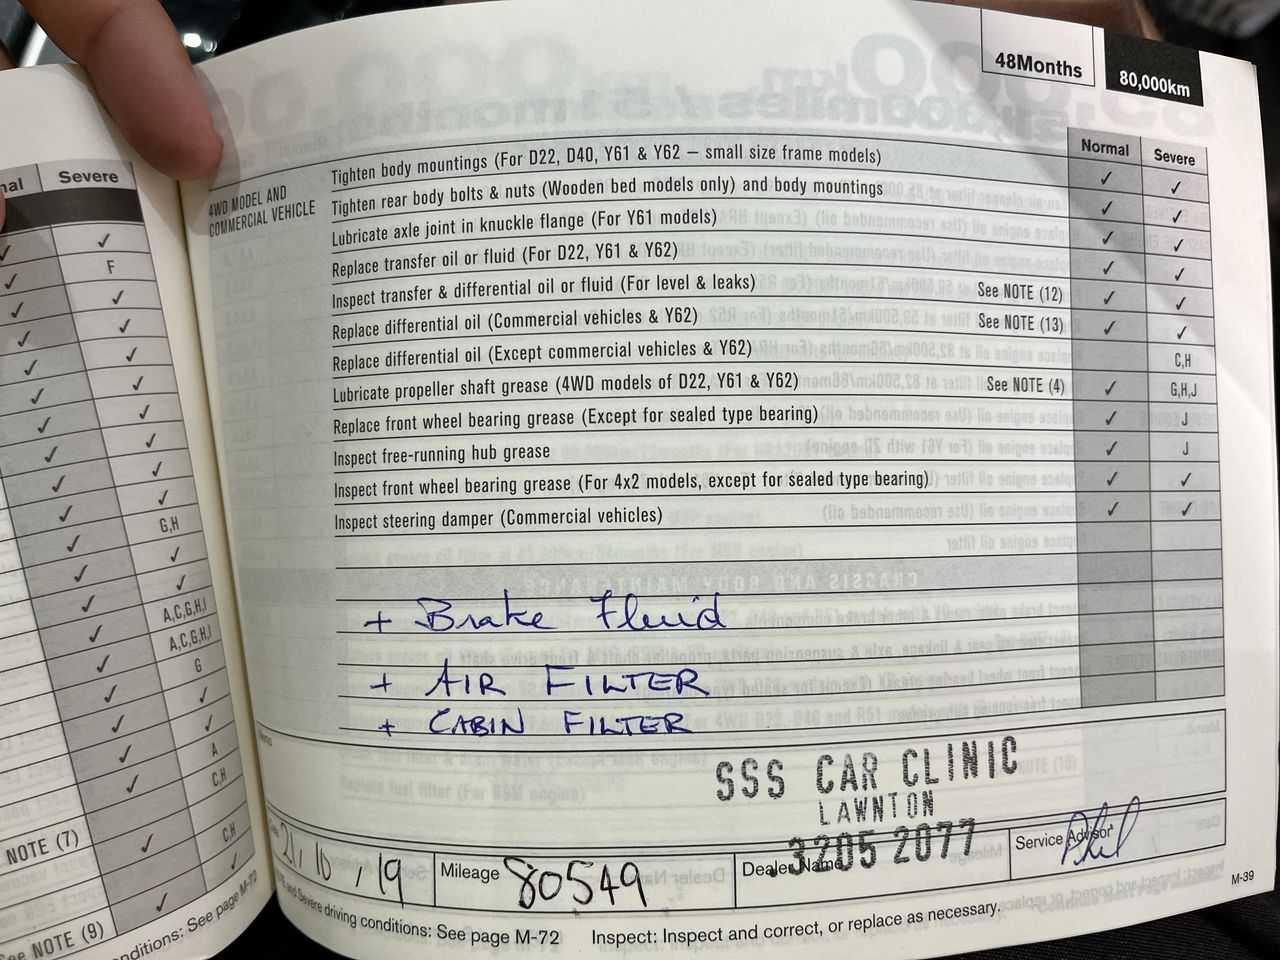 48Months
80,000km
Normal Severe
4WD MODEL AND
COMMERCIAL VEHICLE
Tighten body mountings (For D22, D40, Y61 & Y62 – small size frame models) ✓ ✓
Tighten rear body bolts & nuts (Wooden bed models only) and body mountings ✓ ✓
Lubricate axle joint in knuckle flange (For Y61 models) ✓ ✓
Replace transfer oil or fluid (For D22, Y61 & Y62) ✓ ✓
Inspect transfer & differential oil or fluid (For level & leaks) See NOTE (12) ✓ ✓
Replace differential oil (Commercial vehicles & Y62) See NOTE (13) ✓ ✓
Replace differential oil (Except commercial vehicles & Y62) C,H
Lubricate propeller shaft grease (4WD models of D22, Y61 & Y62) See NOTE (4) ✓ G,H,J
Replace front wheel bearing grease (Except for sealed type bearing) ✓ J
Inspect free-running hub grease ✓ J
Inspect front wheel bearing grease (For 4x2 models, except for sealed type bearing) ✓ ✓
Inspect steering damper (Commercial vehicles) ✓ ✓
+ Brake Fluid
+ AIR FILTER
+ CABIN FILTER
Memo
SSS CAR CLINIC
LAWNTON
3205 2077
21/10/19
Mileage 80549
Dealer Name
Service Advisor
Phil
Severe driving conditions: See page M-72 Inspect: Inspect and correct, or replace as necessary.
M-39
Severe
F
G,H
A,C,G,H,I
A,C,G,H,I
G
A
C,H
NOTE (7)
C,H
See NOTE (9)
conditions: See page M-72